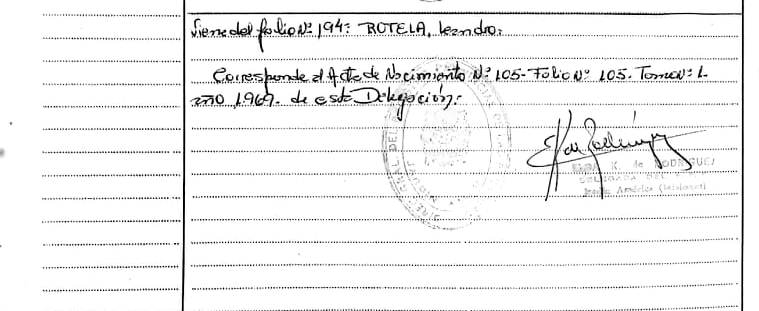 Viene del folio Nº 194: ROTELA, Leandro.
Corresponde al Acta de Nacimiento Nº 105- Folio Nº 105. Tomo Nº: 1-
año 1969. de esta Delegación.-
K. de RODRIGUEZ